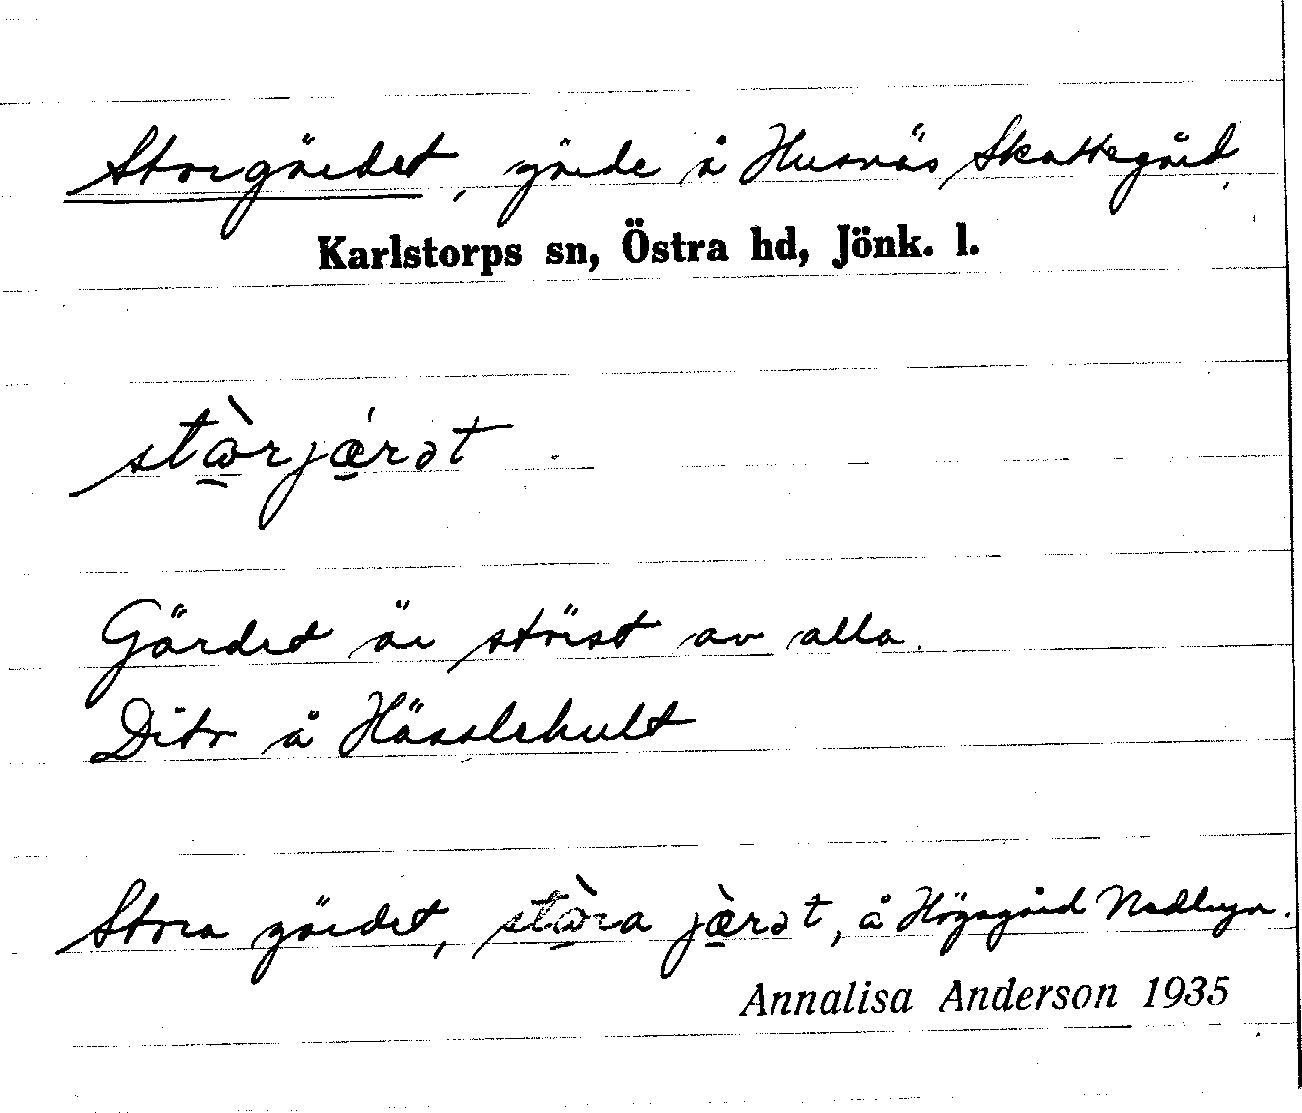 Storgärdet, gärde å Husnäs Skattegård,
Karlstorps sn, Östra hd, Jönk. l.
stò̠rjǽ̠rət
Gärdet är störst av alla.
Dito å Hässlehult
Stora gärdet, stò̠ra jæ̠̀rət, å Högagärd
Annalisa Anderson 1935